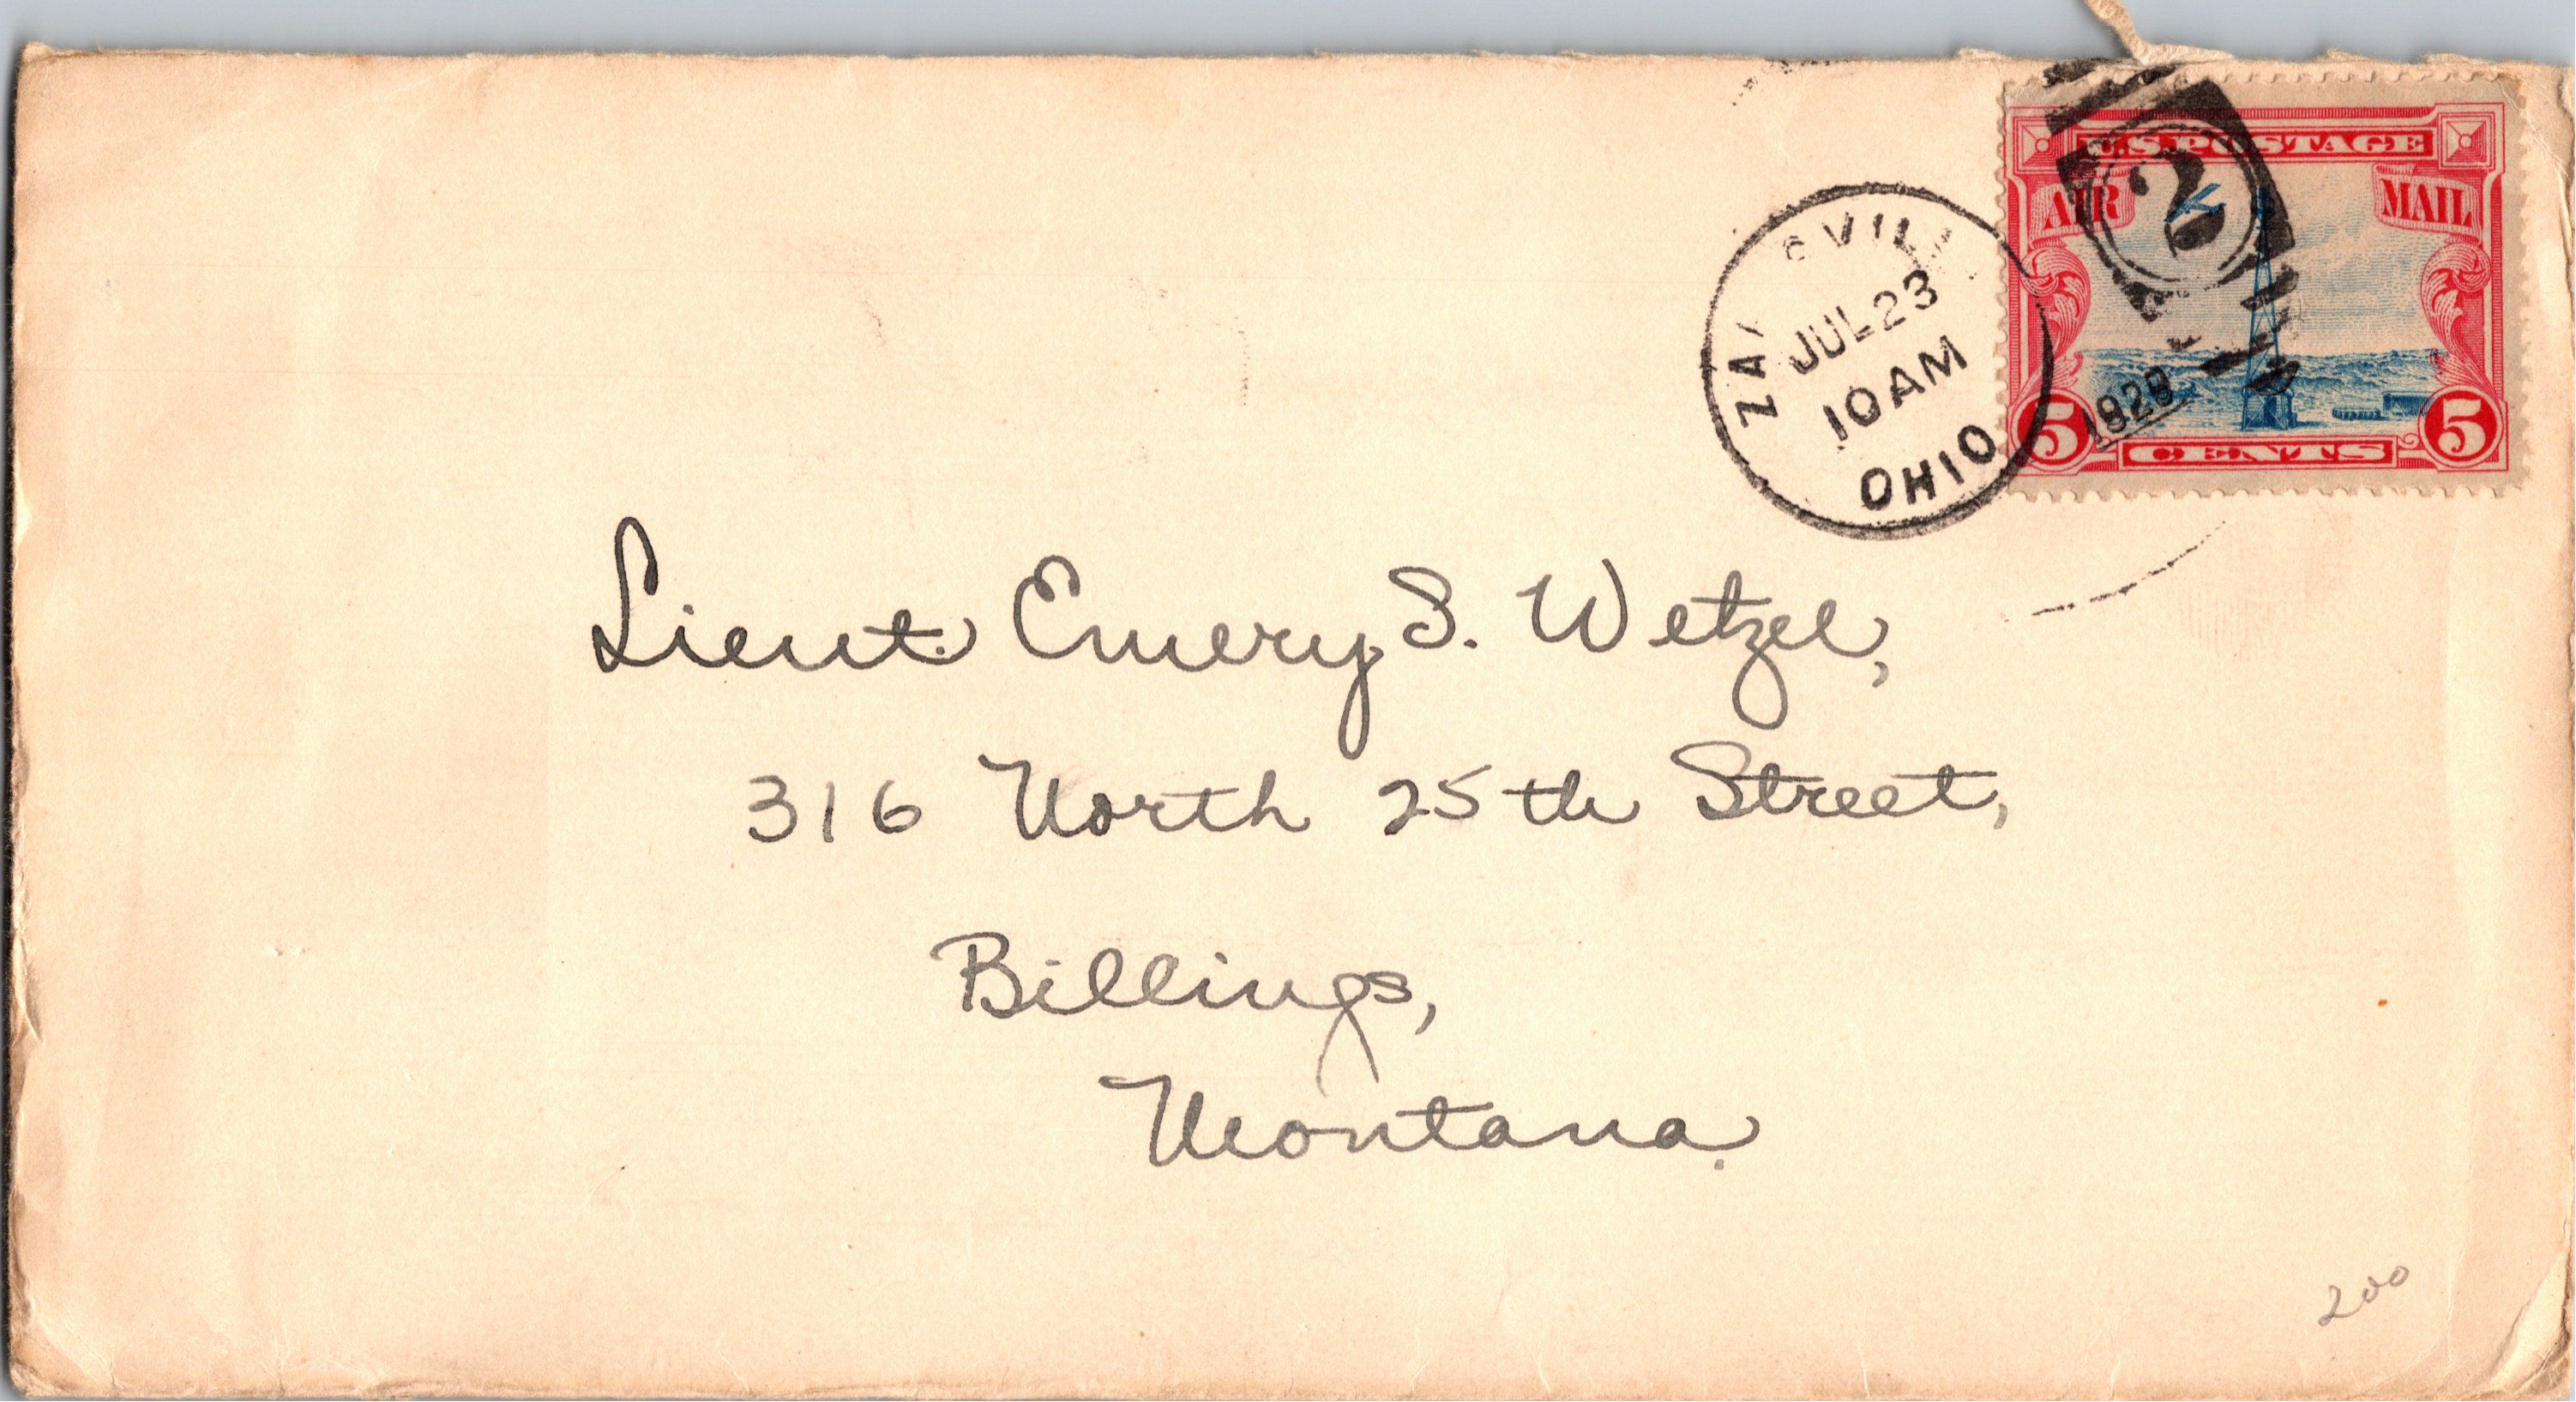 U.S. POSTAGE
AIR MAIL
2
JUL 23
10 AM
OHIO
1928
5 CENTS 5
Lieut. Emery S. Wetzel,
316 North 25th Street,
Billings,
Montana.
200